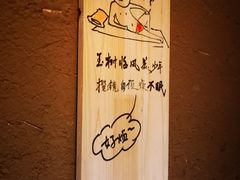 玉树临风美少年
揽镜自顾夜不眠
好烦~